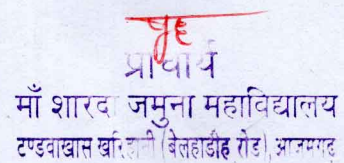 प्राचार्य
माँ शारदा जमुना महाविद्यालय
टण्डवाखास खरिहानी (बेलहाडीह रोड), आजमगढ़